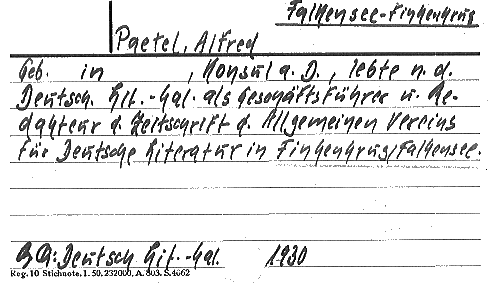 Falkensee-Finkenkrug
Paetel, Alfred
Geb. in , Konsul a. D., lebte n. d.
Deutsch. Lit.-Kal. als Geschäftsführer u. Re-
dakteur d. Zeitschrift d. Allgemeinen Vereins
für Deutsche Literatur in Finkenkrug/Falkensee.
Qu: Deutsch. Lit.-Kal. 1930
Reg. 10 Stichnote, I. 50. 232000, A. 803. S. 4662